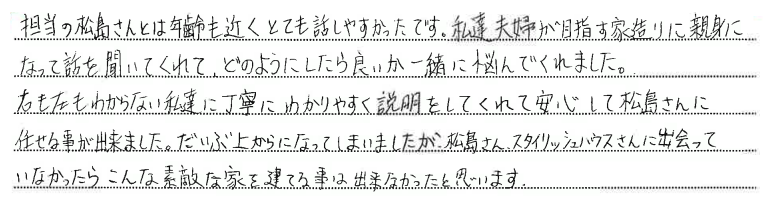 担当の松島さんとは年齢も近くとても話しやすかったです。私達夫婦が目指す家造りに親身に
なって話を聞いてくれて、どのようにしたら良いか一緒に悩んでくれました。
右も左もわからない私達に丁寧にわかりやすく説明をしてくれて安心して松島さんに
任せる事が出来ました。だいぶ上からになってしまいましたが、松島さん、スタイリッシュハウスさんに出会って
いなかったらこんな素敵な家を建てる事は出来なかったと思います。